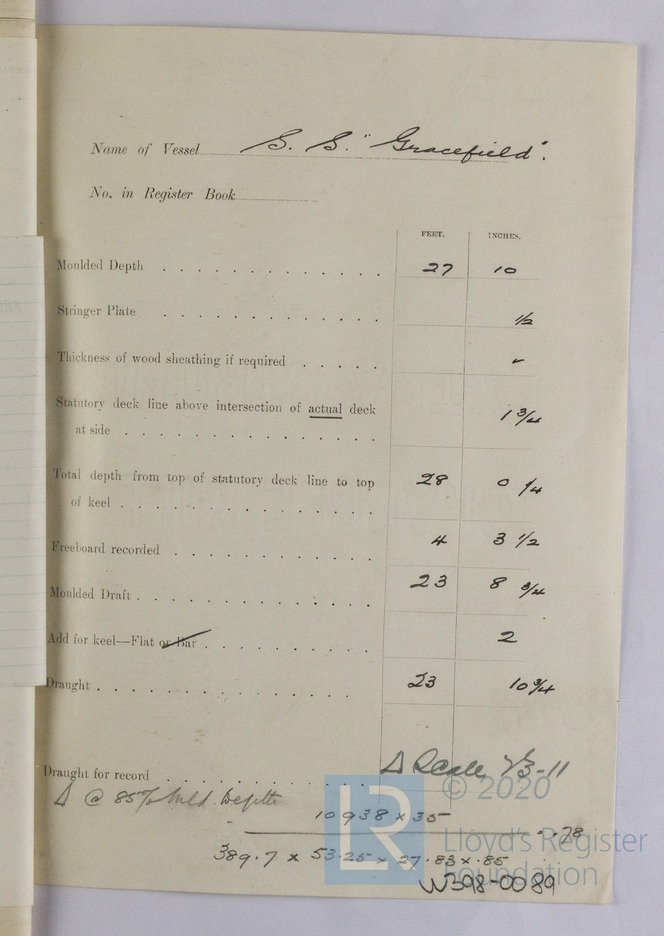 Name of Vessel S. S. "Gracefield".
No. in Register Book
FEET. INCHES.
Moulded Depth . . . . . . . . . . . . . 27 10
Stringer Plate . . . . . . . . . . . . . 1/2
Thickness of wood sheathing if required . . . . . ✓
Statutory deck line above intersection of actual deck
at side . . . . . . . . . . . . . . . 1 3/4
Total depth from top of statutory deck line to top
of keel . . . . . . . . . . . . . . . 28 0 1/4
Freeboard recorded . . . . . . . . . . . . 4 3 1/2
Moulded Draft . . . . . . . . . . . . . . 23 8 3/4
Add for keel—Flat or Bar . . . . . . . . . . 2
Draught . . . . . . . . . . . . . . . 23 10 3/4
Draught for record . . . . . . . . . . . . Δ Scale 23-11
Δ @ 85% Mld. Depth
10938 x 35
= .78
389.7 x 53.25 x 27.83 x .85
W398-0089
LR
© 2020
Lloyd's Register
Foundation